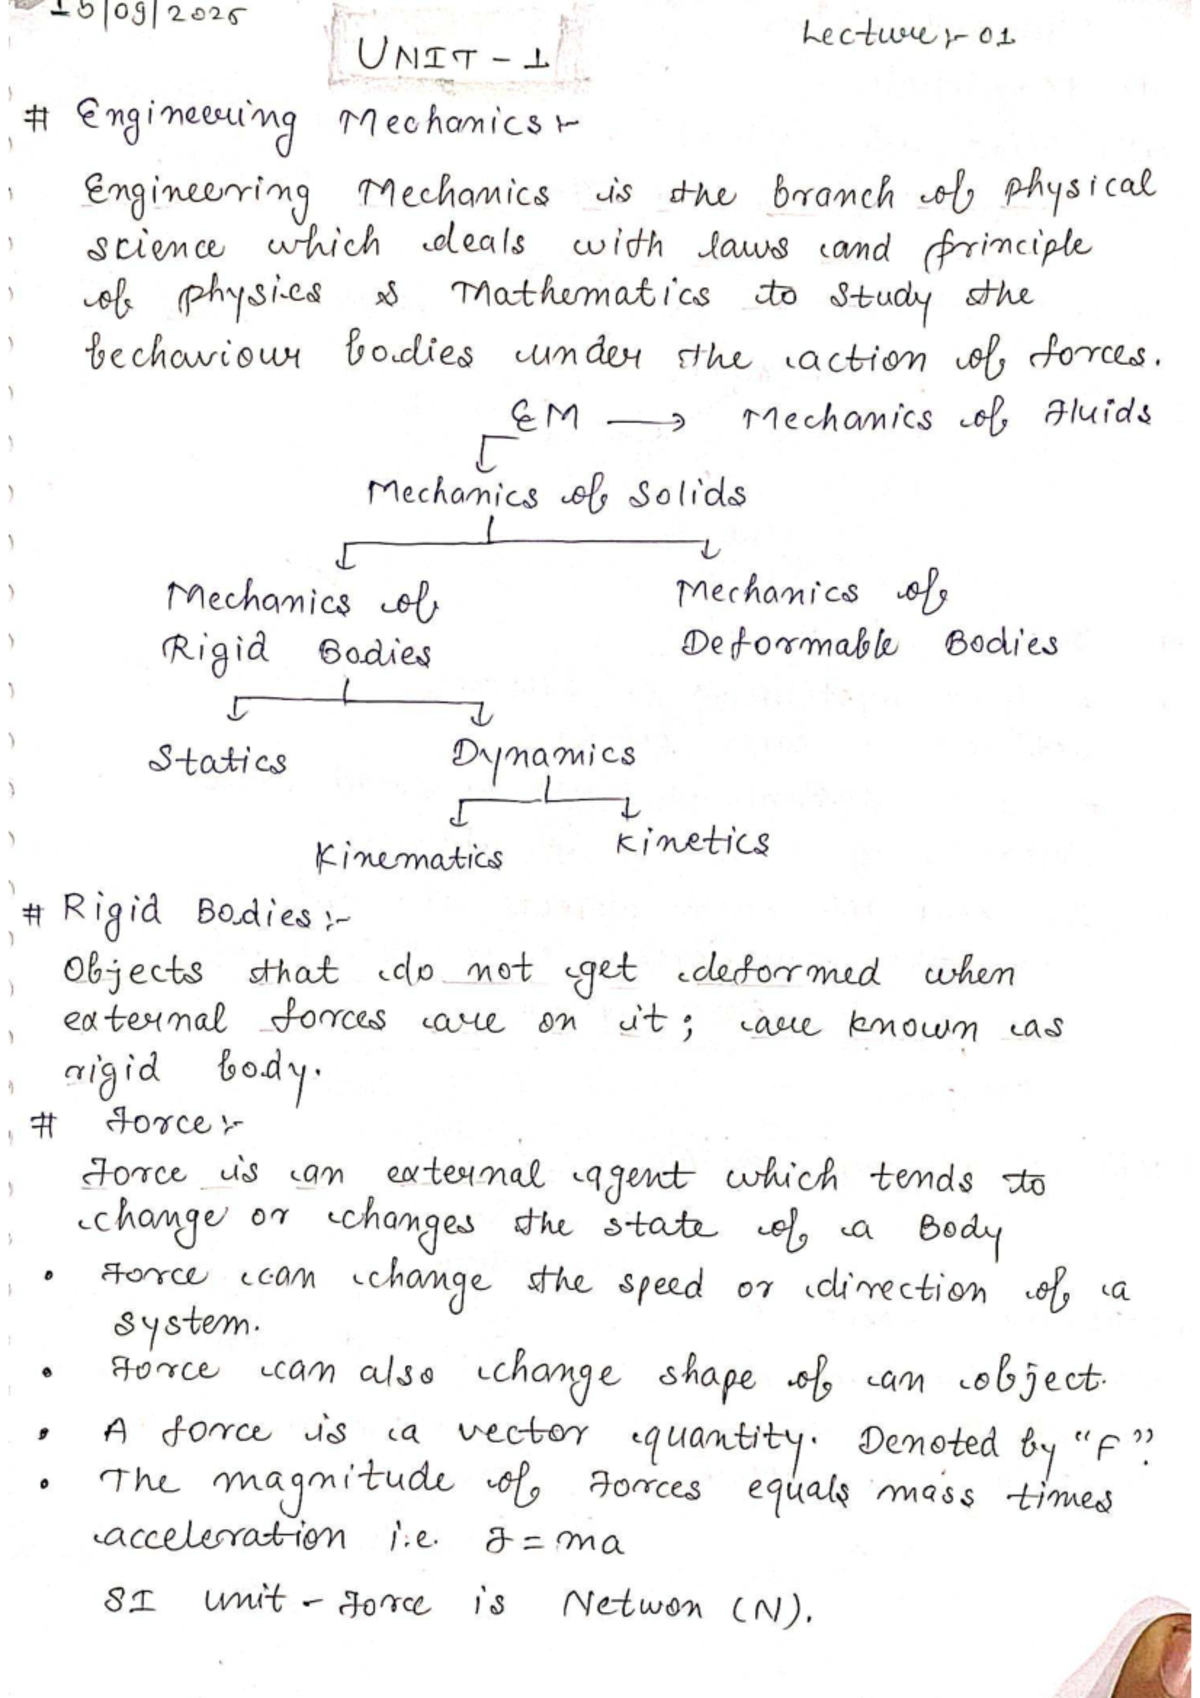 15/09/2025
Lecture :- 01
UNIT - 1
# Engineering Mechanics :-
Engineering Mechanics is the branch of physical
science which deals with laws and principle
of physics & Mathematics to study the
bechaviour bodies under the action of forces.
EM → Mechanics of Fluids
Mechanics of Solids
Mechanics of Mechanics of
Rigid Bodies Deformable Bodies
Statics Dynamics
Kinematics Kinetics
# Rigid Bodies :-
Objects that do not get deformed when
external forces are on it; are known as
rigid body.
# Force :-
Force is an external agent which tends to
change or changes the state of a Body
• Force can change the speed or direction of a
system.
• Force can also change shape of an object.
• A force is a vector quantity. Denoted by "F".
• The magnitude of Forces equals mass times
acceleration i.e. F = ma
SI unit - Force is Netwon (N).